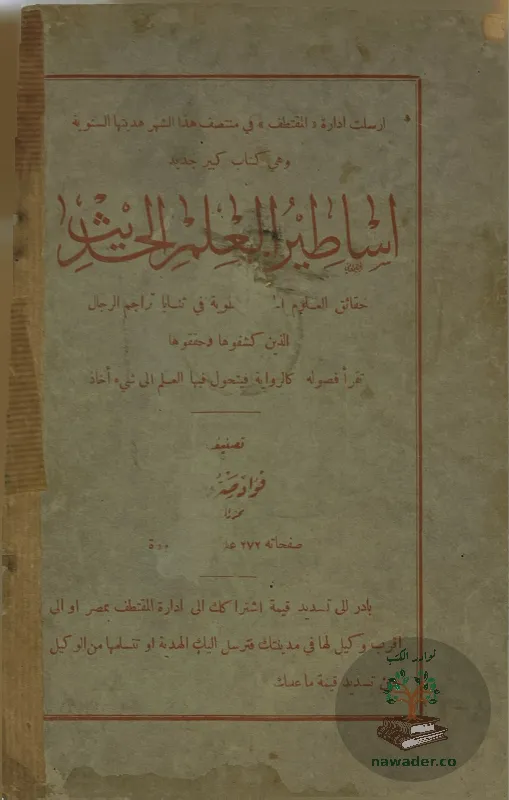 ارسلت ادارة «المقتطف» في منتصف هذا الشهر هديتها السنوية
وهي كتاب كبير جديد
اساطير العلم الحديث
حقائق العلوم في ثنايا تراجم الرجال
الذين كشفوها وحققوها
تقرأ فصوله كالرواية فيتحول فيها العلم الى شيء أخاذ
تصنيف
فؤاد صروف
صفحاته ٢٧٢
بادر الى تسديد قيمة اشتراكك الى ادارة المقتطف بمصر او الى
اقرب وكيل لها في مدينتك فترسل اليك الهدية او تتسلمها من الوكيل
تسديد قيمة ما عليك
نوادر الكتب
nawader.co